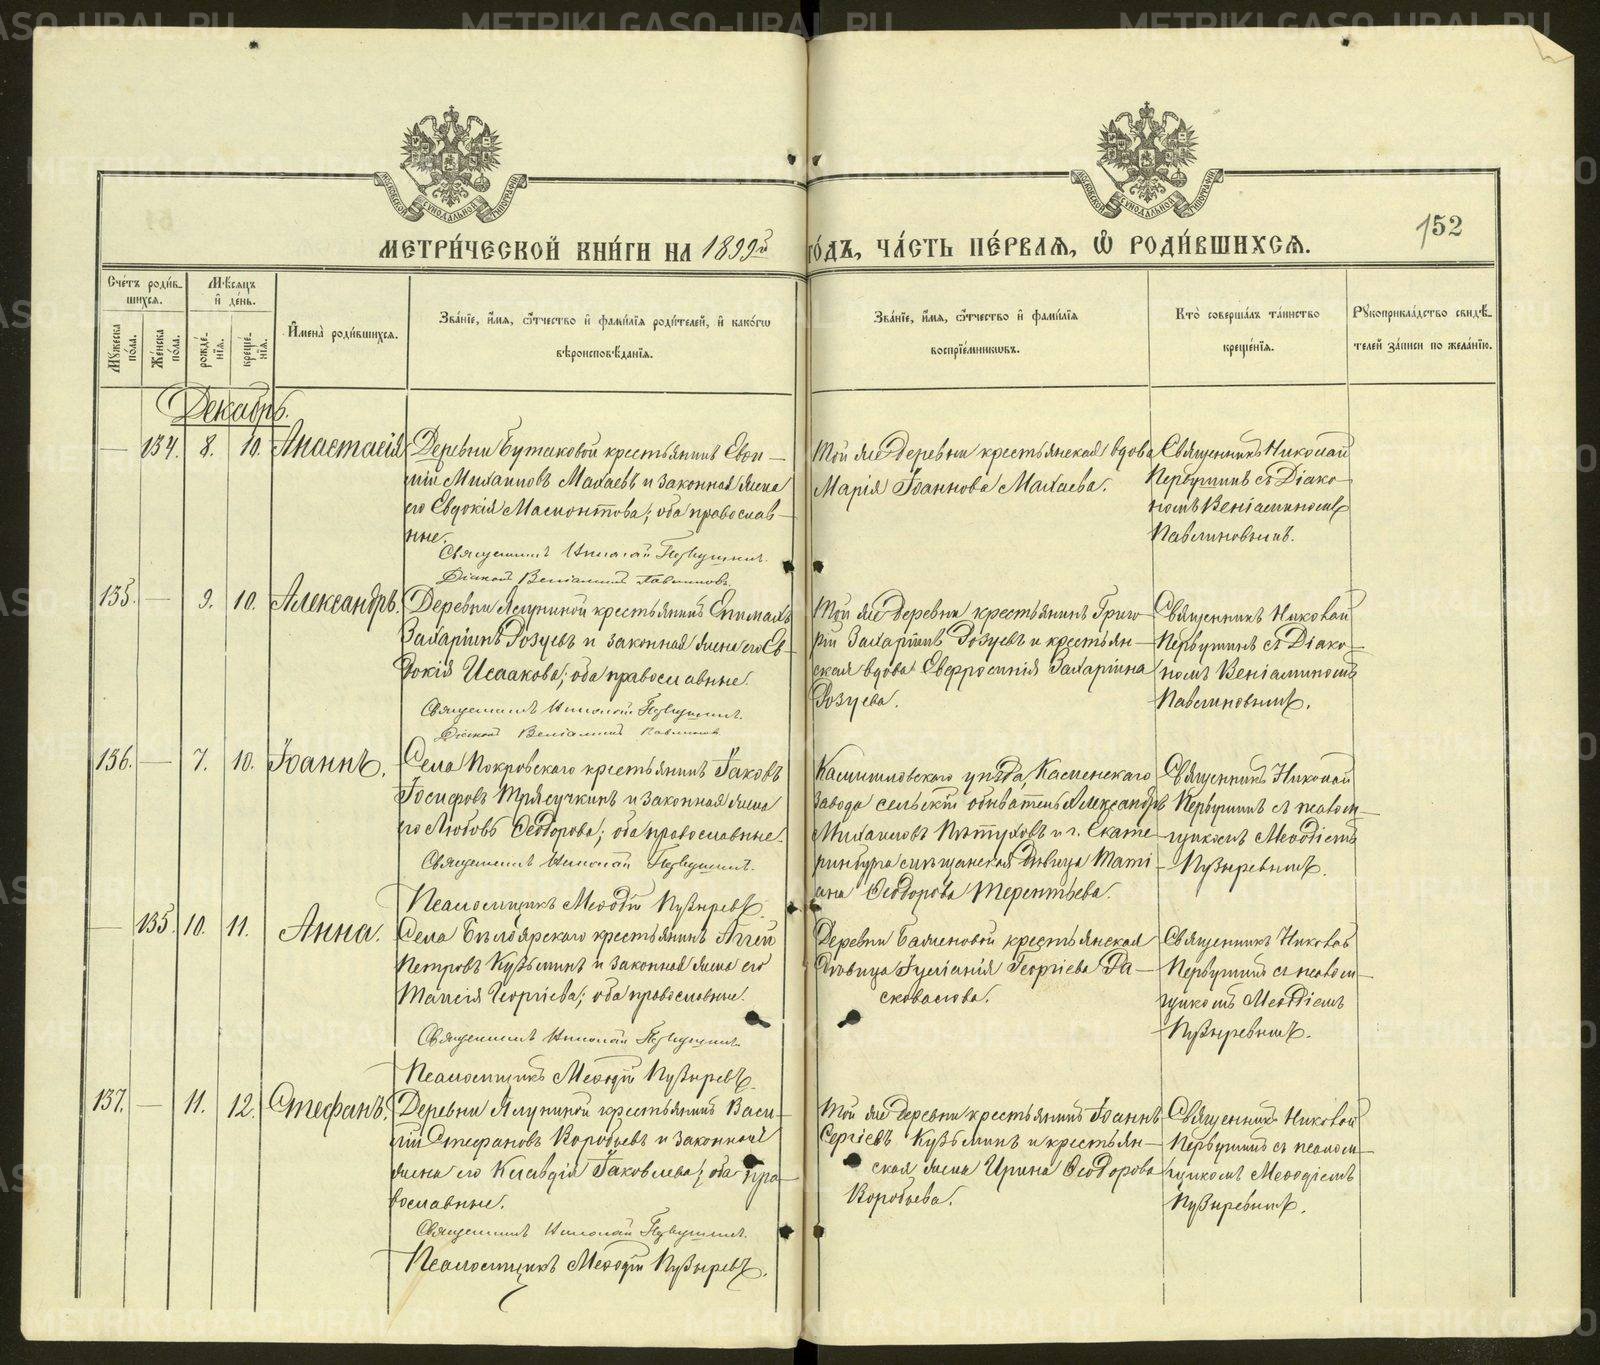 МЕТРИ́ЧЕСКОЙ КНИ́ГИ НА 1899й ГО́ДЪ, ЧА́СТЬ ПЕ́РВАЯ, Ѡ РОДИ́ВШИХСЯ.
152
Сче́тъ роди́вшихся.
Мꙋжеска по́ла.
Же́нска по́ла.
Мѣ́сяцъ и҆ де́нь.
рожде́нїя.
креще́нїя.
И҆мена̀ роди́вшихся.
Зва́нїе, и҆́мя, ѻ҆́тчество и҆ фами́лїя роди́телей, и҆ како́гѡ
вѣроисповѣ́данїя.
Зва́нїе, и҆́мя, ѻ҆́тчество и҆ фами́лїя
воспрїе́мникѡвъ.
Кто̀ соверша́лъ та́инство
креще́нїя.
Рꙋкоприкла́дство свидѣ́-
телей за́писи по жела́нїю.
Декабрь.
— 134. 8. 10. Анастасія
Деревни Бутаковой крестьянинъ Евфи-
мій Михаиловъ Махаевъ и законная жена
его Евдокія Масионтова; оба православ-
ные.
Священникъ Николай Первушинъ.
Діаконъ Веніаминъ Павлиновъ.
Той же деревни крестьянская вдова
Марія Іоаннова Махаева.
Священникъ Николай
Первушинъ съ Діако-
номъ Веніаминомъ
Павлиновымъ.
135. — 9. 10. Александръ.
Деревни Ялуниной крестьянинъ Епимахъ
Захаріинъ Розуевъ и законная жена его Ев-
докія Исаакова; оба православные.
Священникъ Николай Первушинъ.
Діаконъ Веніаминъ Павлиновъ
Той же деревни крестьянинъ Григо
рій Захаріинъ Розуевъ и крестьян-
ская вдова Евфросинія Захаріина
Розуева.
Священникъ Николай
Первушинъ съ Діако-
номъ Веніаминомъ
Павлиновымъ.
136. — 7. 10. Іоаннъ.
Села Покровскаго крестьянинъ Іаковъ
Іосифовъ Трясучкинъ и законная жена
его Любовь Ѳеодорова; оба православные.
Священникъ Николай Первушинъ.
Псаломщикъ Меѳодій Пузыревъ.
Камышловскаго уѣзда, Каменскаго
завода сельскій обыватель Александръ
Михаиловъ Пѣтуховъ и г. Екате-
ринбурга мѣщанская дѣвица Тати-
ана Ѳеодорова Терентьева.
Священникъ Николай
Первушинъ съ псалом-
щикомъ Меѳодіемъ
Пузыревымъ.
— 135. 10. 11. Анна.
Села Бѣлоярскаго крестьянинъ Аггей
Петровъ Кузьминъ и законная жена его
Таисія Георгіева; оба православные.
Священникъ Николай Первушинъ.
Псаломщикъ Меѳодій Пузыревъ.
Деревни Баженовой крестьянская
дѣвица Іуліанія Георгіева Ра-
сковалова.
Священникъ Николай
Первушинъ съ псалом-
щикомъ Меѳодіемъ
Пузыревымъ.
137. — 11. 12. Стефанъ.
Деревни Ялуниной крестьянинъ Васи-
лій Стефановъ Воробьевъ и законная
жена его Клавдія Іаковлева; оба пра-
вославные.
Священникъ Николай Первушинъ.
Псаломщикъ Меѳодій Пузыревъ.
Той же деревни крестьянинъ Іоаннъ
Сергіевъ Кузьминъ и крестьян-
ская жена Ирина Ѳеодорова
Воробьева.
Священникъ Николай
Первушинъ съ псалом-
щикомъ Меѳодіемъ
Пузыревымъ.
METRIKI.GASO-URAL.RU